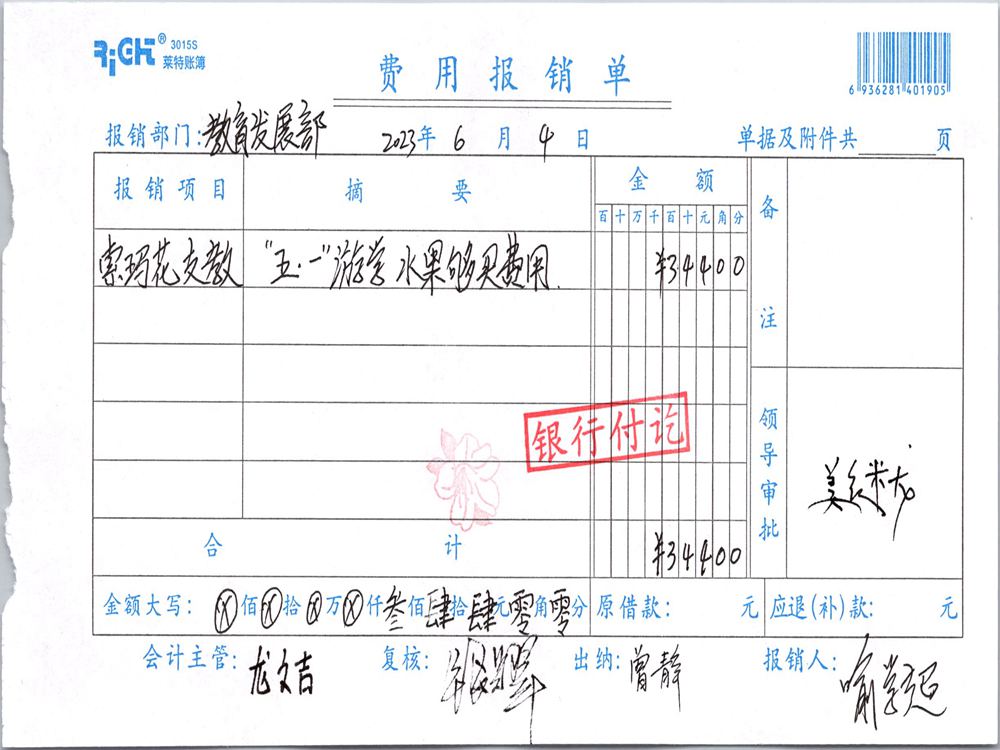 RiGHT® 3015S
莱特账簿
费用报销单
6 936281 401905
报销部门:教育发展部 2023年 6 月 4 日 单据及附件共 页
报销项目 摘要 金额 备注
百十万千百十元角分
索玛花支教 "五·一"游学水果购买费用. ¥34400
银行付讫
领导审批
合计 ¥34400
金额大写:ⓧ佰ⓧ拾ⓧ万ⓧ仟叁佰肆拾肆元零角零分 原借款: 元 应退(补)款: 元
会计主管:龙文吉 复核: 出纳:曾静 报销人:喻学超